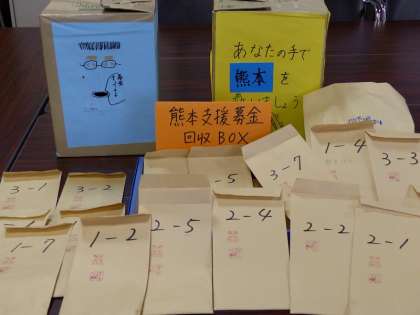 あなたの手で
熊本を
救いましょう
熊本支援募金
回収BOX
3-1
3-2
-5
3-7
1-4
3-3
1-7
1-2
2-5
2-4
2-2
2-1